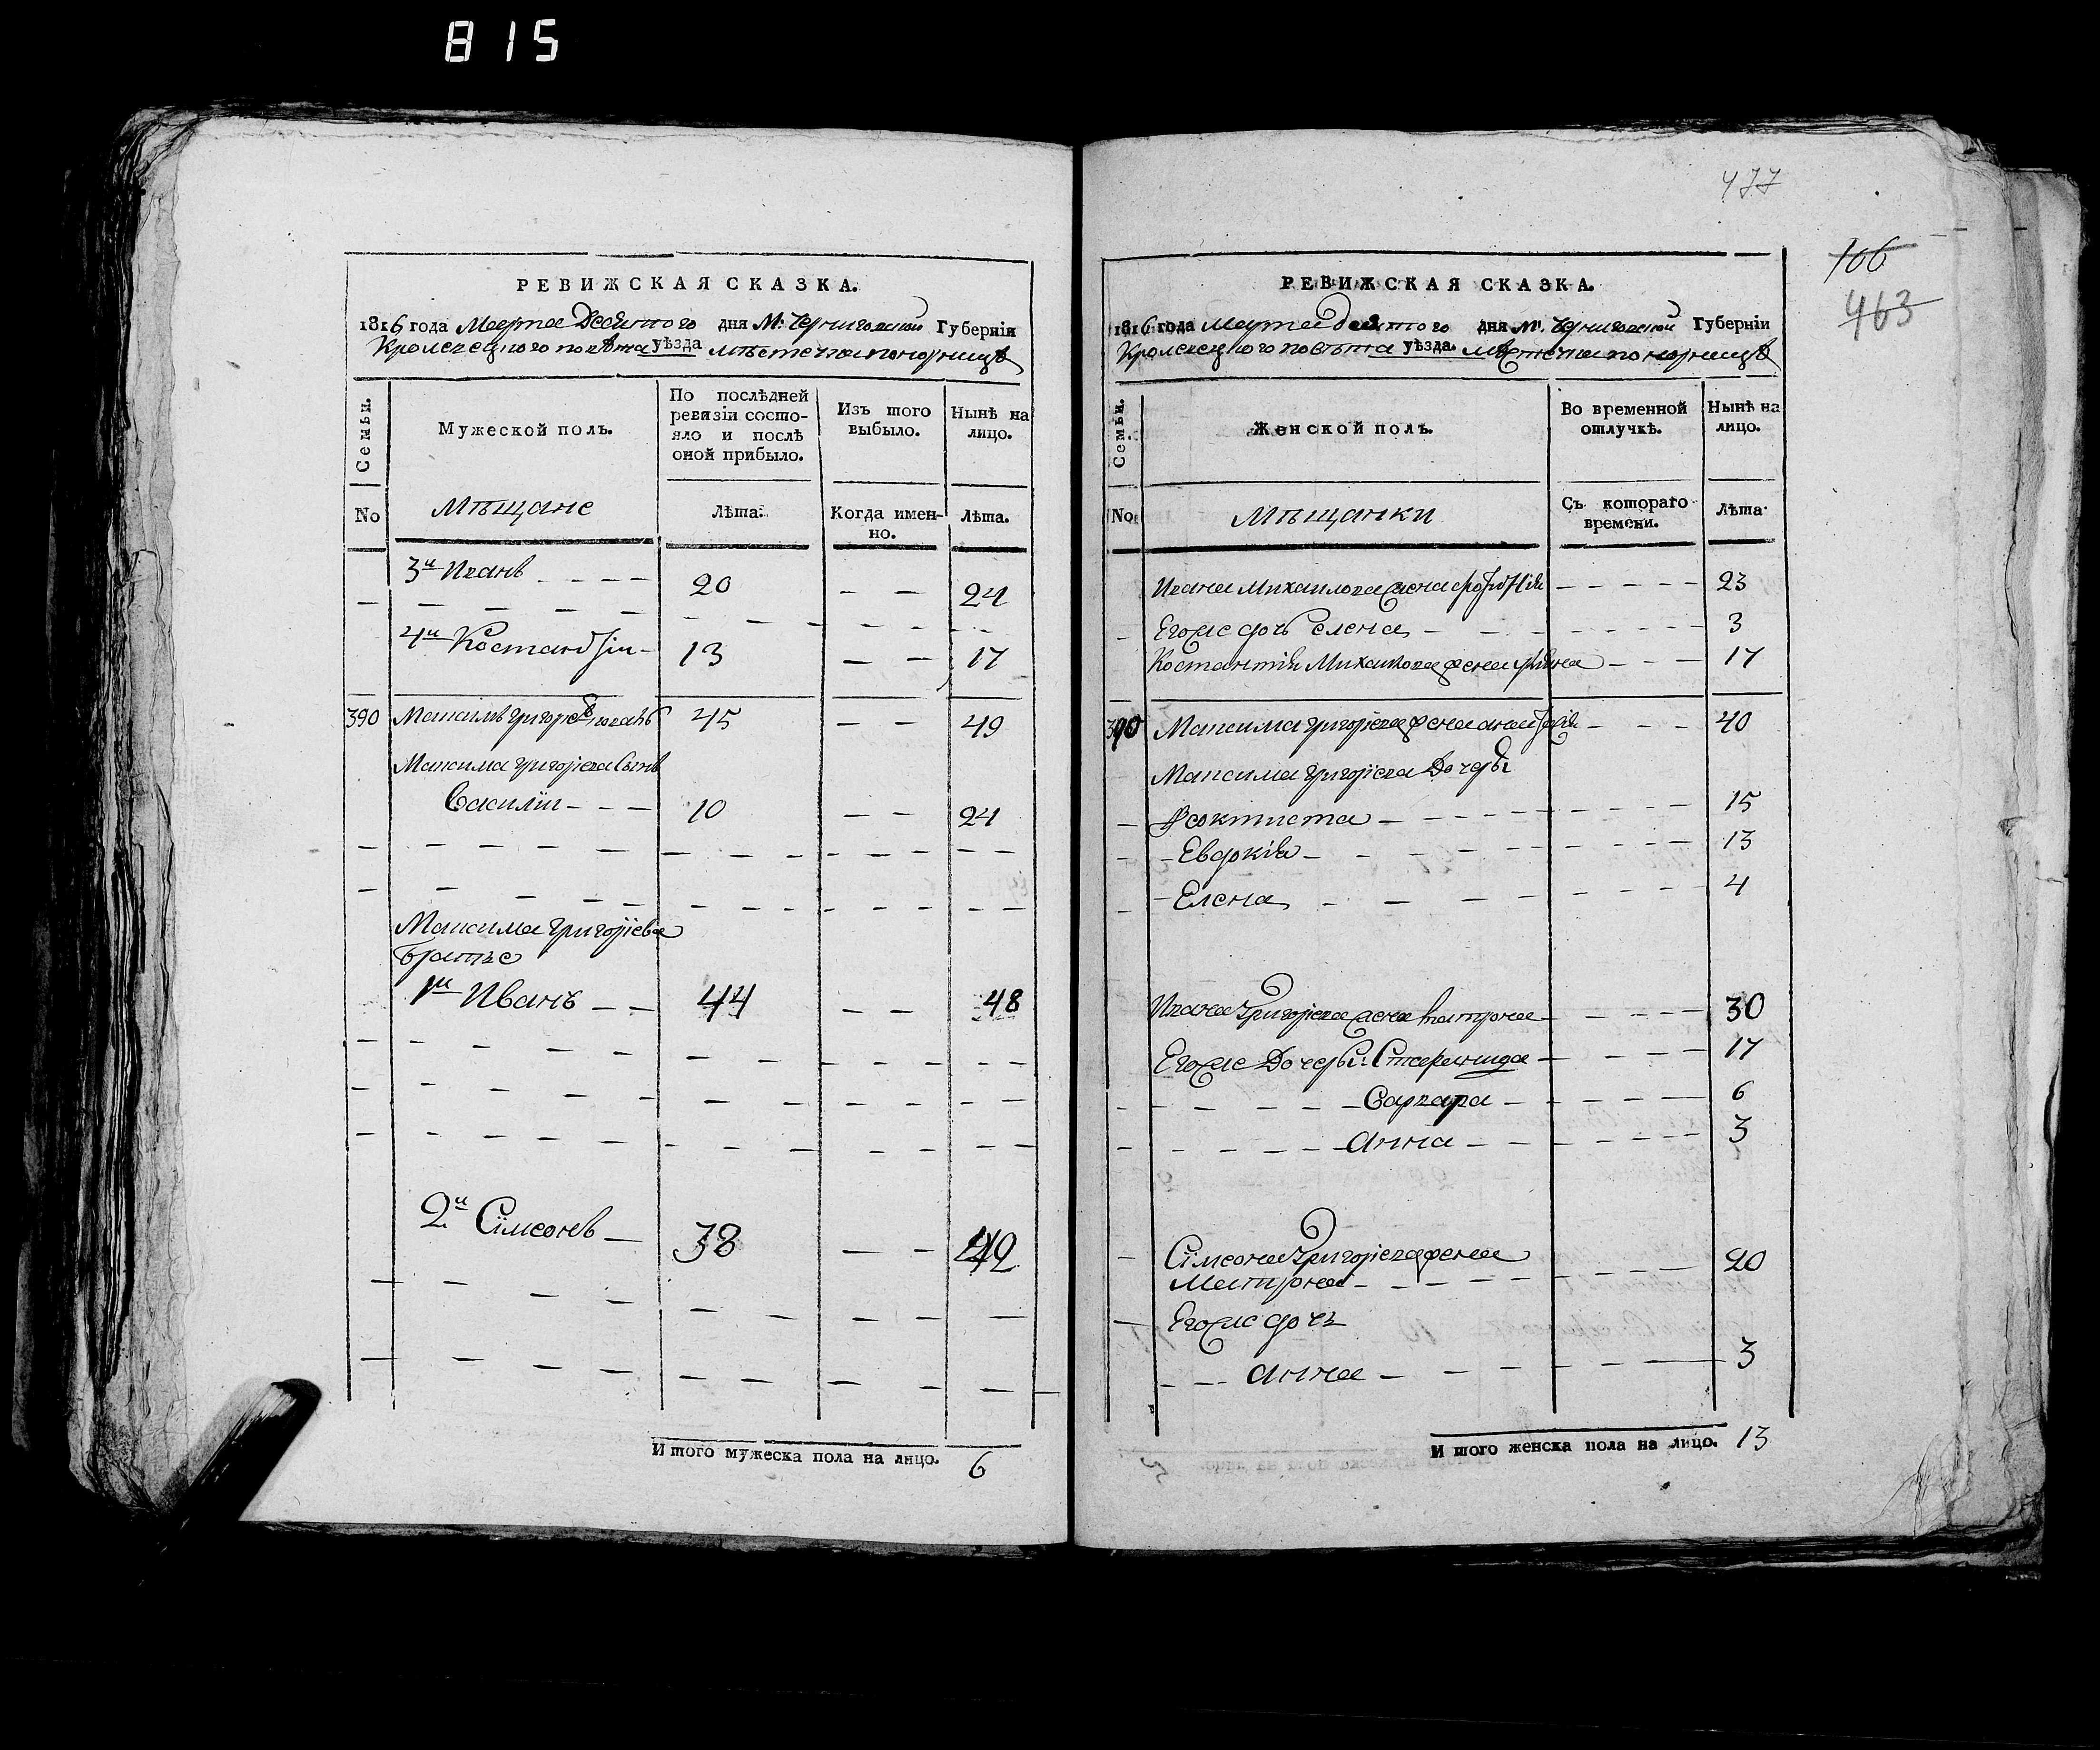 815
РЕВИЖСКАЯ СКАЗКА.
1816 года Марта Десятого дня М: Черниговской Губернїи
Кролевецкого повѣта уѣзда мѣстечка Понорницѣ
Семьи.
Мужеской полъ.
По послѣдней ревизїи состояло и послѣ оной прибыло.
Изъ того выбыло.
Нынѣ на лицо.
No
Мѣщане
Лѣта.
Когда именно.
Лѣта.
3й Иванъ 20 24
4й Костантїй 13 17
390 Максимъ Григорїевъ 45 49
Максима Григорїева Сынъ
Василїй 10 24
Максима Григорїева
Братья
1й Иванъ 44 48
2й Сїмеонъ 38 42
И того мужеска пола на лицо. 6
477
106
463
РЕВИЖСКАЯ СКАЗКА.
1816 года Марта десятого дня М. Черниговской Губернїи
Кролевецкого повѣта уѣзда. мѣстечка Понорницѣ
Семьи.
Женской полъ.
Во временной отлучкѣ.
Нынѣ на лицо.
No
Мѣщанки
Съ котораго времени.
Лѣта.
Ивана Михаилова жена 23
Его же дочь Елена 3
Костантїя Михаилова жена 17
390 Максима Григорїева жена 40
Максима Григорїева Дочеры
Феоктиста 15
Евдокїя 13
Елена 4
Ивана Григорїева жена 30
Его же Дочеры: Стефанида 17
Варвара 6
Анна 3
Сїмеона Григорїева жена
Матрона 20
Его же дочь
Анна 3
И того женска пола на лицо. 13